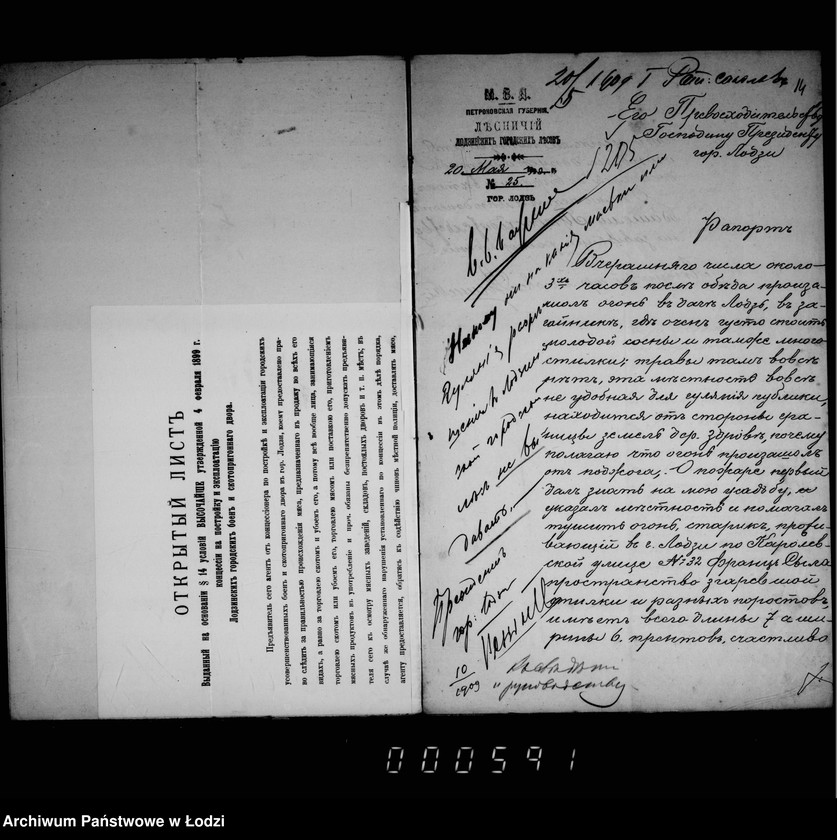 ОТКРЫТЫЙ ЛИСТЪ
Выданный на основаніи § 14 условій ВЫСОЧАЙШЕ утвержденной 4 февраля 1899 г.
концессіи на постройку и эксплоатацію
Лодзинскихъ городскихъ боенъ и скотопригоннаго двора.
Предъявитель сего агентъ отъ концессіонера по постройкѣ и эксплоатаціи городскихъ
усовершенствованныхъ боенъ и скотопригоннаго двора въ гор. Лодзи, коему предоставлено пра-
во слѣдить за правильностью происхожденія мяса, предназначеннаго въ продажу во всѣхъ его
видахъ, а равно за торговлею скотомъ и убоемъ его, а потому всѣ вообще лица, занимающіяся
торговлею скотомъ или убоемъ его, торговлею мясомъ или поставкою его, приготовленіемъ
мясныхъ продуктовъ въ употребленіе и проч. обязаны безпрепятственно допускать предъяви-
теля сего къ осмотру мясныхъ заведеній, складовъ, постоялыхъ дворовъ и т. п. мѣстъ; въ
случаѣ же обнаруженнаго нарушенія установленнаго по концессіи въ этомъ дѣлѣ порядка,
агенту предоставляется, обратясь къ содѣйствію чиновъ мѣстной полиціи, доставлять мясо,
М. В. Д.
ПЕТРОКОВСКАЯ ГУБЕРНІЯ.
ЛѢСНИЧІЙ
ЛОДЗИНСКИХЪ ГОРОДСКИХЪ ЛѢСОВЪ
20 Мая
№ 25.
ГОР. ЛОДЗЬ
20/5 1909 I
14
Его Превосходительству
Господину Президенту
гор. Лодзи
1205
Рапортъ
Вчерашняго числа около
3хъ часовъ послѣ обѣда произо-
шолъ огонь въ дачѣ Лодзь, въ за-
гайникѣ, гдѣ очень густо стоитъ
молодой сосны и таможе много
стилки; травы тамъ вовсѣ
нѣтъ, эта мѣстность вовсѣ
не удобная для гулянія публики,
находится отъ стороны гра-
ницы земель дер. Здровѣ, почему
полагаю что огонь произошолъ
отъ поджога. О пожарѣ первый
далъ знать на мою усадьбу,
указалъ мѣстность и помогалъ
тушить огонь, старикъ, прожи-
вающій въ г. Лодзи по Каролев-
ской улицѣ № 32 Францъ
пространство згаревшой
стилки и разныхъ поростовъ
имѣетъ всего длины 7 а ши-
рины 6 прентовъ, счастливо
Никому ни на какія маевки или
гулянія
не вы
давать.
Президентъ
гор. Лодзи
10
1909
къ
руководству
000591
Archiwum Państwowe w Łodzi